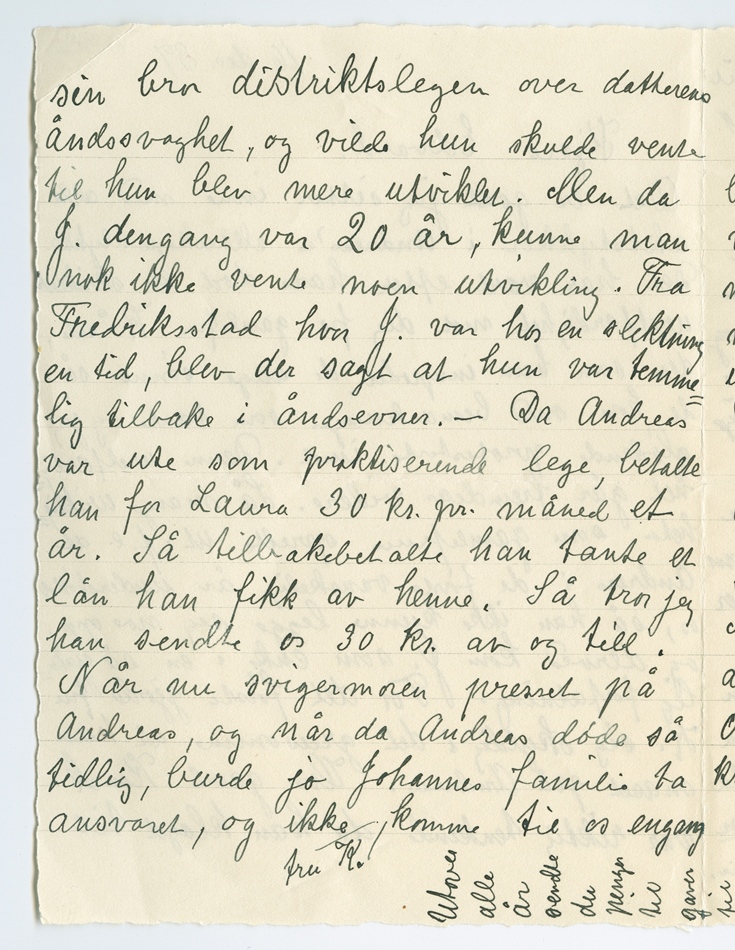 sin bror distriktslegen over datterens
åndssvaghet, og vilde hun skulde vente
til hun blev mere utviklet. Men da
J. dengang var 20 år, kunne man
nok ikke vente noen utvikling. Fra
Fredriksstad hvor J. var hos en slektning
en tid, blev der sagt at hun var temme=
lig tilbake i åndsevner. — Da Andreas
var ute som praktiserende lege, betalte
han for Laura 30 kr. pr. måned et
år. Så tilbakebetalte han tante et
lån han fikk av henne. Så tror jeg
han sendte os 30 kr. av og till.
Når nu svigermoren presset på
Andreas, og når da Andreas døde så
tidlig, burde jo Johannes familie ta
ansvaret, og ikke, komme til os engang
fru K.
Utover
alle
år
sendte
du
penger
til
gaver
til